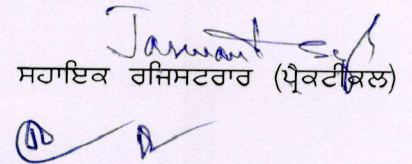 Jaswant Singh
ਸਹਾਇਕ ਰਜਿਸਟਰਾਰ (ਪ੍ਰੈਕਟੀਕਲ)